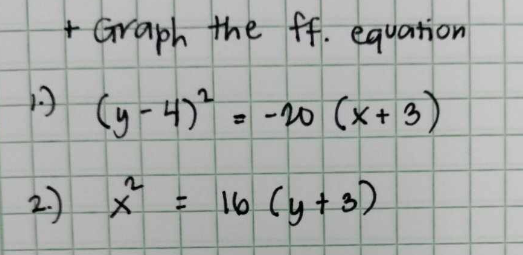 + Graph the ff. equation
1.) (y - 4)² = -20 (x + 3)
2.) x² = 16 (y + 3)